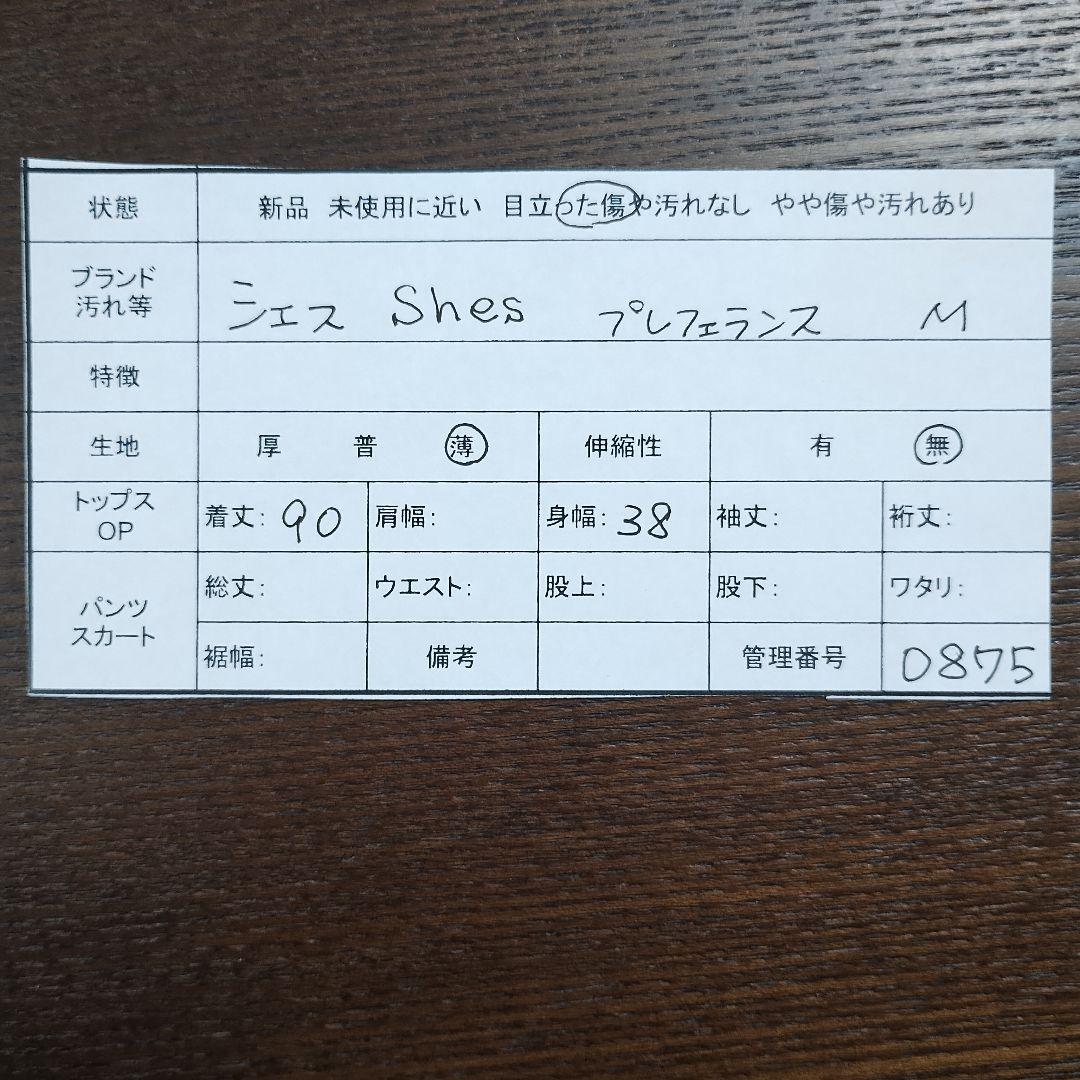 状態 新品 未使用に近い 目立った傷や汚れなし やや傷や汚れあり
ブランド
汚れ等
シエス Shes プレフェランス M
特徴
生地 厚 普 薄 伸縮性 有 無
トップス
OP
着丈: 90 肩幅: 身幅: 38 袖丈: 裄丈:
パンツ
スカート
総丈: ウエスト: 股上: 股下: ワタリ:
裾幅: 備考 管理番号 0875